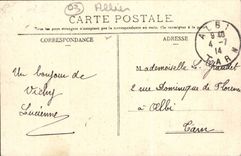 03 Allier
CARTE POSTALE
CORRESPONDANCE
ADRESSE
ALBI
9 40
4 - 7
14
TARN
Un bonjour de
Vichy
Lucienne
Mademoiselle L.
2 rue Dominique de Florence
Albi
Tarn